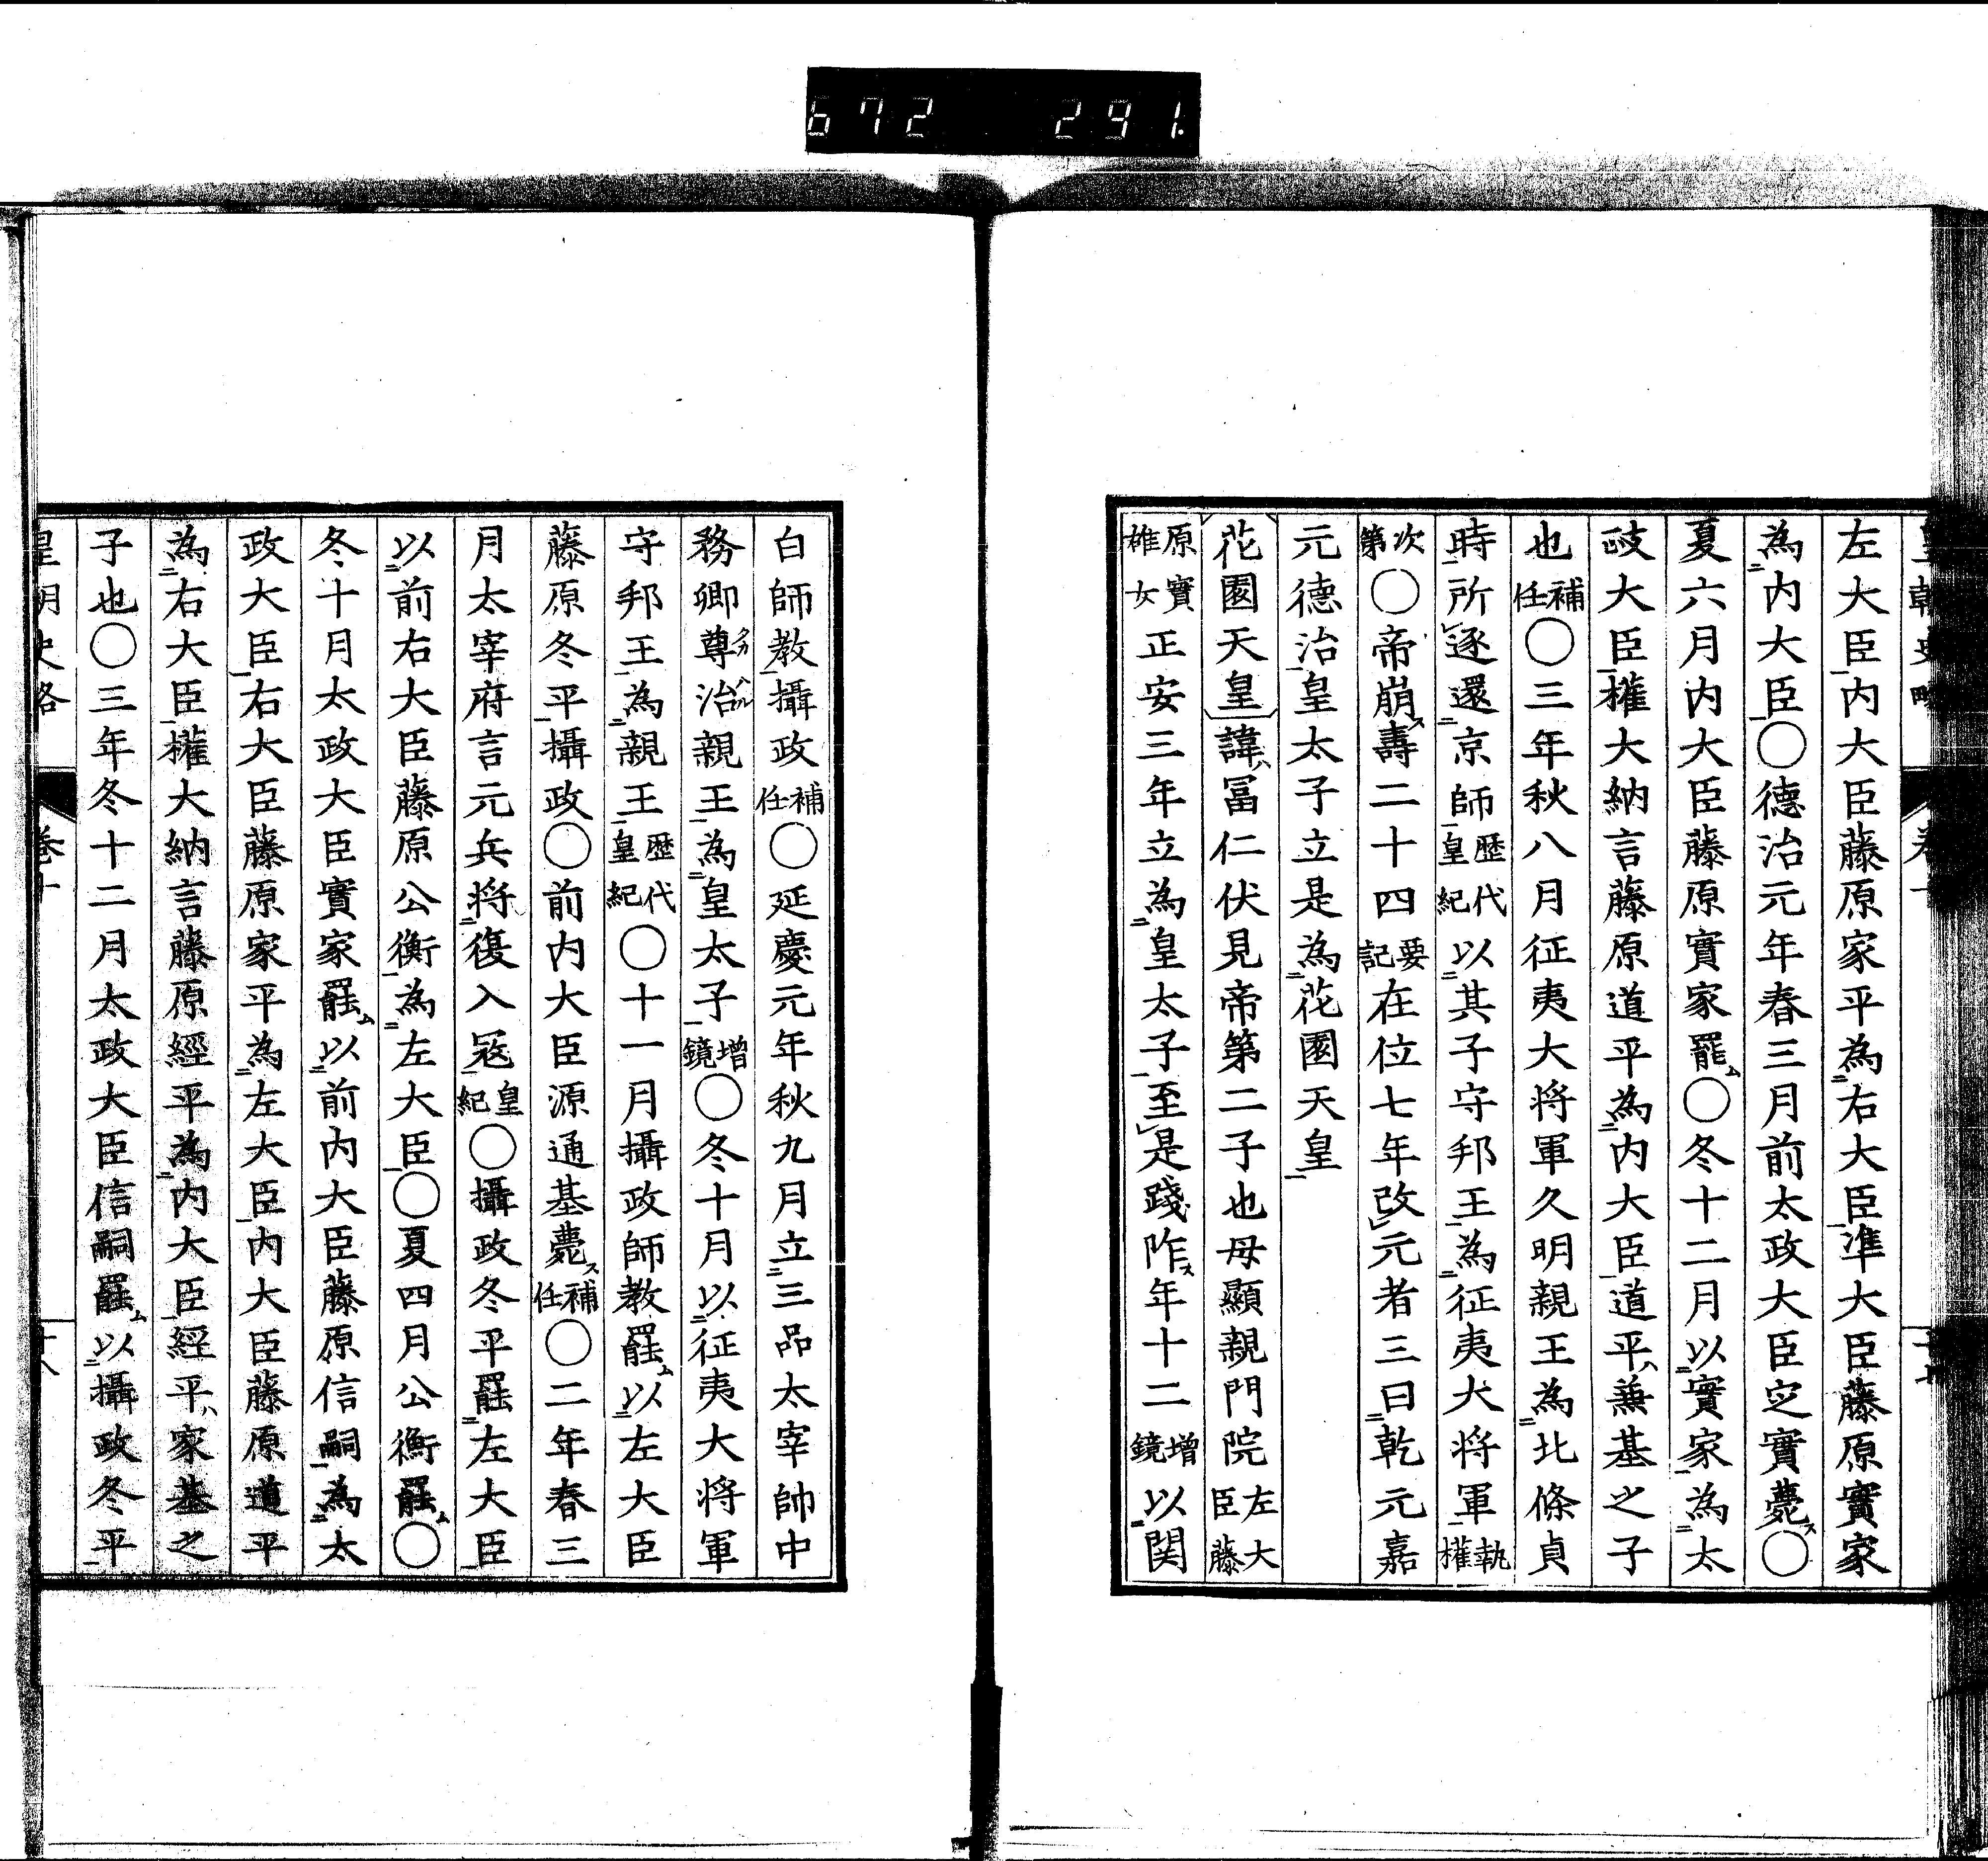 672 291.
左大臣内大臣藤原家平為右大臣準大臣藤原實家
為内大臣〇德治元年春三月前太政大臣定實薨ス〇
夏六月内大臣藤原實家罷ム〇冬十二月以實家為太
政大臣權大納言藤原道平為内大臣道平ハ兼基之子
也補任〇三年秋八月征夷大将軍久明親王為北條貞
時所逐還京師歴代皇紀以其子守邦王為征夷大将軍執權
次第〇帝崩ス壽二十四要記在位七年改元者三曰乾元嘉
元德治皇太子立是為花園天皇
花園天皇諱ハ冨仁伏見帝第二子也母顯親門院左大臣藤
原實雄女正安三年立為皇太子至是踐祚ス年十二增鏡以関
白師教攝政補任〇延慶元年秋九月立三品太宰帥中
務卿尊治タカハル親王為皇太子增鏡〇冬十月以征夷大将軍
守邦王為親王歴代皇紀〇十一月攝政師教罷ム以左大臣
藤原冬平攝政〇前内大臣源通基薨ス補任〇二年春三
月太宰府言元兵将復入冦皇紀〇攝政冬平罷左大臣
以前右大臣藤原公衡為左大臣〇夏四月公衡罷ム〇
冬十月太政大臣實家罷ム以前内大臣藤原信嗣為太
政大臣右大臣藤原家平為左大臣内大臣藤原道平
為右大臣權大納言藤原經平為内大臣經平ハ家基之
子也〇三年冬十二月太政大臣信嗣罷ム以攝政冬平